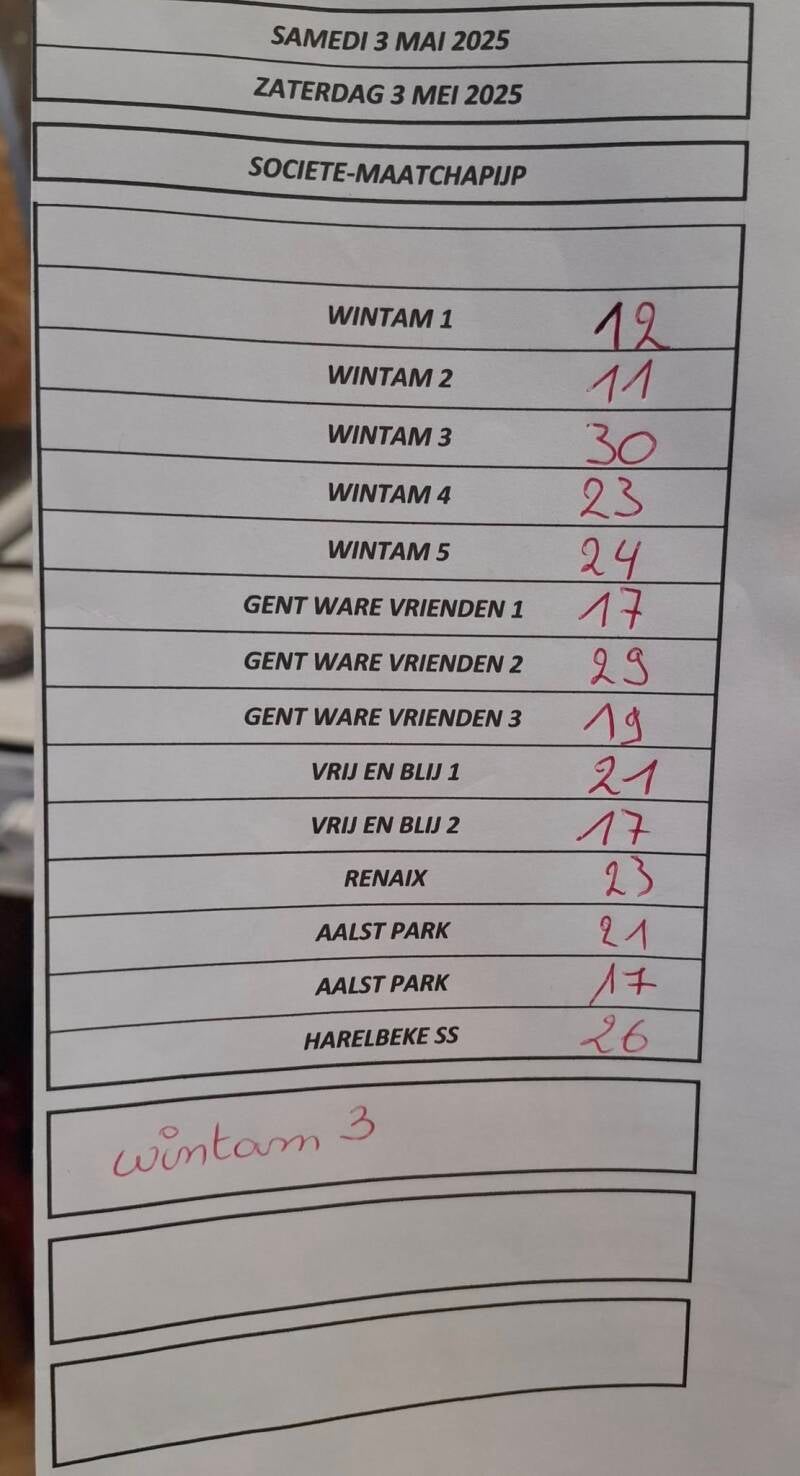 SAMEDI 3 MAI 2025
ZATERDAG 3 MEI 2025
SOCIETE-MAATCHAPIJP
WINTAM 1 12
WINTAM 2 11
WINTAM 3 30
WINTAM 4 23
WINTAM 5 24
GENT WARE VRIENDEN 1 17
GENT WARE VRIENDEN 2 29
GENT WARE VRIENDEN 3 19
VRIJ EN BLIJ 1 21
VRIJ EN BLIJ 2 17
RENAIX 23
AALST PARK 21
AALST PARK 17
HARELBEKE SS 26
wintam 3